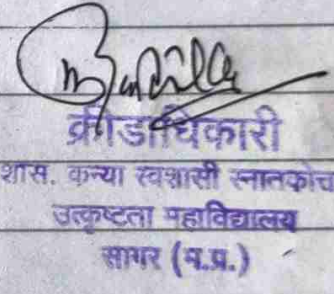 क्रीडाधिकारी
शास. कन्या स्वशासी स्नातकोच
उत्कृष्टता महाविद्यालय
सागर (म.प्र.)